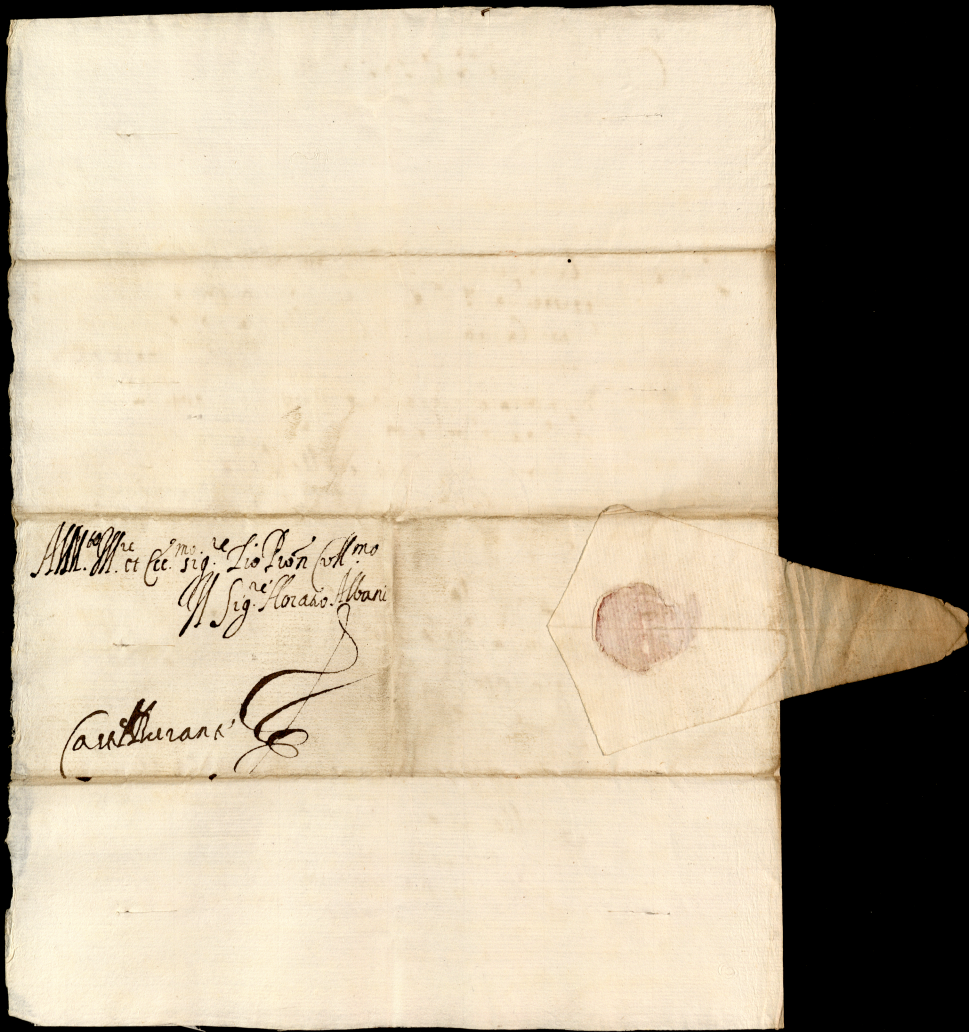 All M.to Ill.re et Ecc.mo sig.re Zio Pron Coll.mo
Il Sig.re Horatio Albani
Castel Durante